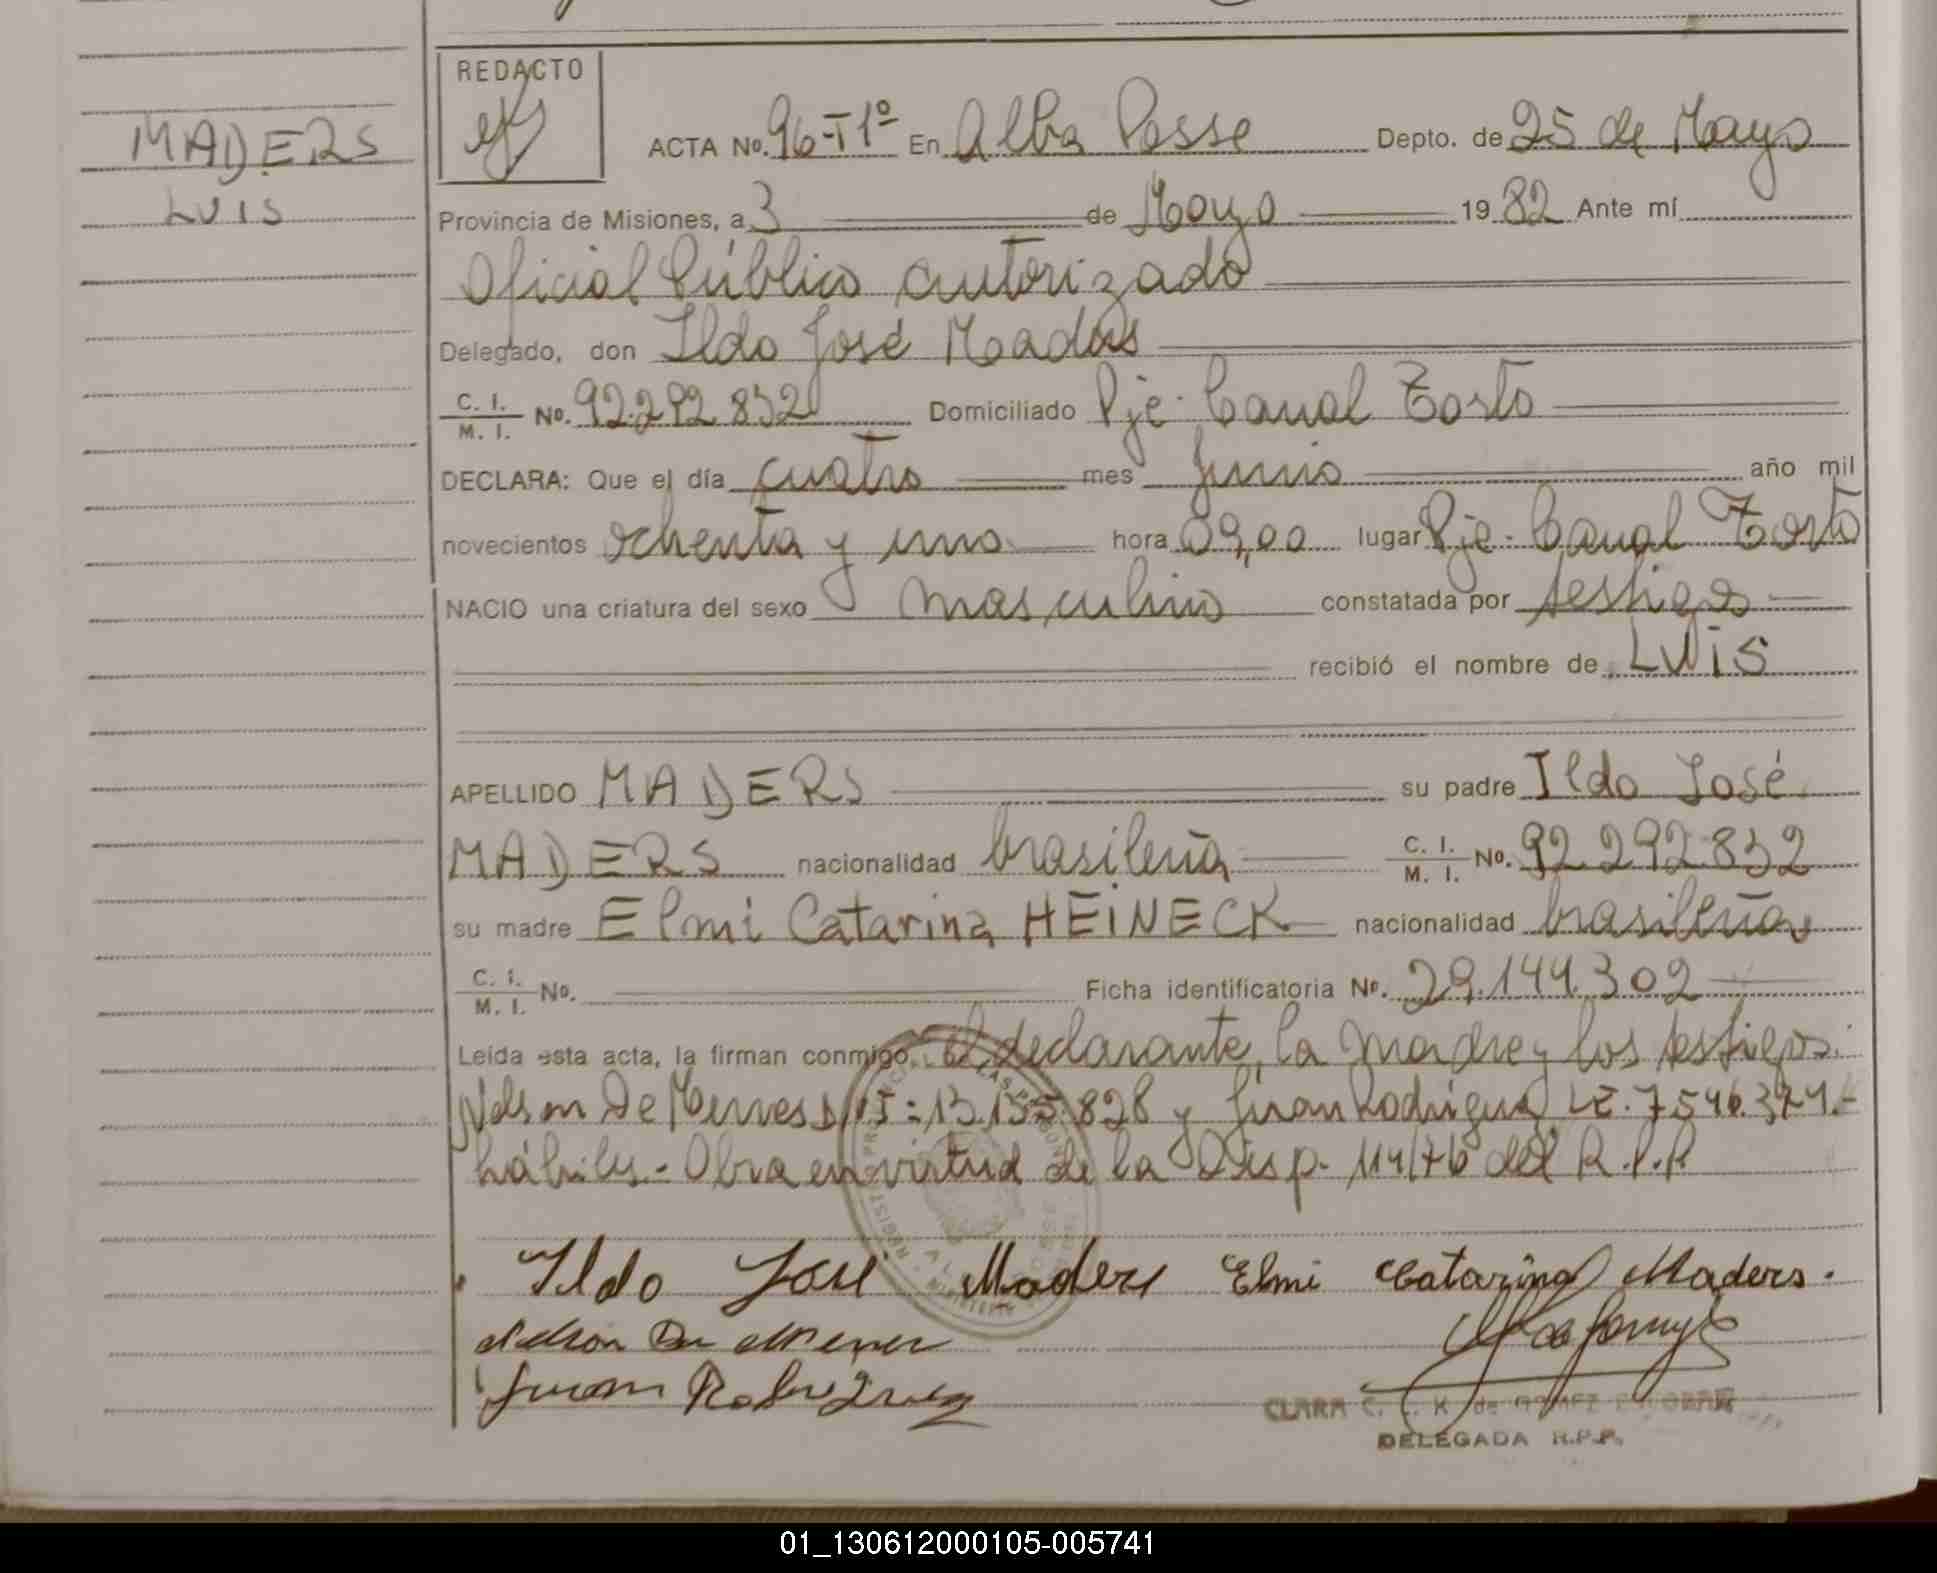 REDACTO
MADERS
LUIS
ACTA No. 96-T1º En Alba Posse Depto. de 25 de Mayo
Provincia de Misiones, a 3 de Mayo 19 82 Ante mí
Oficial Público autorizado
Delegado, don Ildo José Maders
C. I. / M. I. No. 92.292.832 Domiciliado Pje. Canal Torto
DECLARA: Que el día cuatro mes junio año mil
novecientos ochenta y uno hora 09,00 lugar Pje. Canal Torto
NACIO una criatura del sexo masculino constatada por testigos
recibió el nombre de LUiS
APELLIDO MADERS su padre Ildo José
MADERS nacionalidad brasileña C. I. / M. I. No. 92.292.832
su madre Elmi Catarina HEiNECK nacionalidad brasileña
C. I. / M. I. No. Ficha identificatoria Nº. 29.144.302
Leída esta acta, la firman conmigo, el declarante, la madre y los testigos:
Nelson De Menes DNI: 13.155.828 y Juan Rodriguez LE. 7.546.374.-
hábiles.- Obra en virtud de la Disp. 114/76 del R.P.P
Ildo José Maders Elmi Catarina Maders.
Nelson De Menes
Juan Rodriguez
CLARA C. K de GOMEZ
DELEGADA R.P.P.
01_130612000105-005741